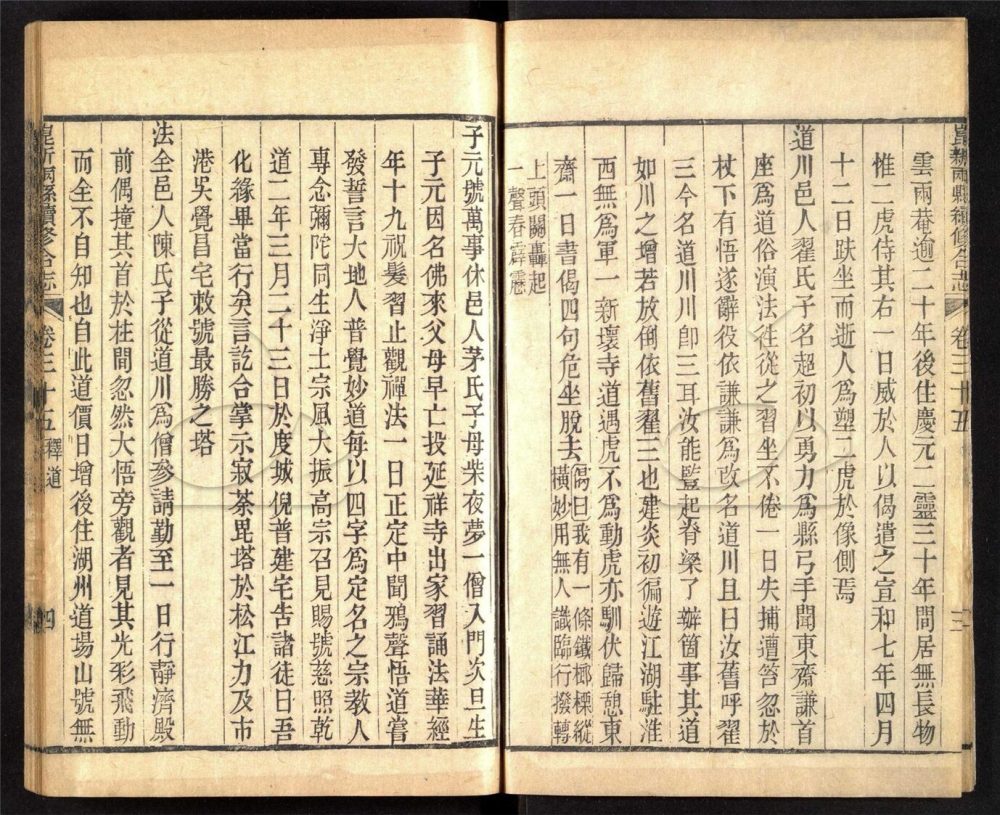 崑新兩縣續修合志 卷三十五 三
雲雨菴逾二十年後住慶元二靈三十年間居無長物
惟二虎侍其右一日威於人以偈遣之宣和七年四月
十二日趺坐而逝人爲塑二虎於像側焉
道川邑人翟氏子名超初以勇力爲縣弓手聞東齋謙首
座爲道俗演法往從之習坐不倦一日失捕遭笞忽於
杖下有悟遂辭役依謙謙爲改名道川且曰汝舊呼翟
三今名道川川卽三耳汝能豎起脊梁了辦箇事其道
如川之增若放倒依舊翟三也建炎初徧遊江湖駐淮
西無爲軍一新壞寺道遇虎不爲動虎亦馴伏歸憩東
齋一日書偈四句危坐脫去偈曰我有一條鐵榔櫟縱
橫妙用無人識臨行撥轉
上頭關轟起
一聲春霹靂
子元號萬事休邑人茅氏子母柴夜夢一僧入門次旦生
子元因名佛來父母早亡投延祥寺出家習誦法華經
年十九祝髮習止觀禪法一日正定中聞鴉聲悟道嘗
發誓言大地人普覺妙道每以四字爲定名之宗教人
專念彌陀同生淨土宗風大振高宗召見賜號慈照乾
道二年三月二十三日於度城倪普建宅吿諸徒曰吾
化緣畢當行矣言訖合掌示寂荼毘塔於松江力及市
港吳覺昌宅敕號最勝之塔
法全邑人陳氏子從道川爲僧參請勤至一日行靜濟殿
前偶撞其首於柱間忽然大悟旁觀者見其光彩飛動
而全不自知也自此道價日增後住湖州道場山號無
崑新兩縣續修合志 卷三十五 釋道 四